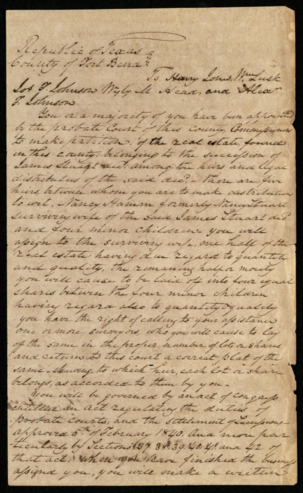 Republic of Texas
County of Fort Bend
To Henry Jones Wm Lusk
Jos F Johnson Wyly M Head, and Alexr
F Johnson
You or a majority of you have been appointed
by the probate Court of this County Commissioners
to make partition of the real estate found
in this county belonging to the succession of
James Stuart decd among the heirs and legal
distributees of the said decd. There are five
heirs between whom you are to make distribution
to wit, Nancy formerly Nancy Stuart
surviving wife of the said James Stuart decd
and four minor children you will
assign to the surviving wife one half of the
real estate having due regard to quantity
and quality, the remaining half or moiety
you will cause to be laid off into four equal
shares between the four minor children
having regard also to quantity & quality
you have the right of calling to your assistance
one or more surveyors who you will cause to lay
off the same in the proper number of lots or shares
and return to this court a correct plat of the
same shewing to which heir, each lot or share
belongs, as accorded to them by you.
You will be governed by an act of congress
entitled an act regulating the duties of
Probate Courts, and the settlement of successions
approved 5th February 1840. And more par
ticularly by Sections 39 40 41 and 42 of
that act. When you have finished the business
assigned you, you will make a written